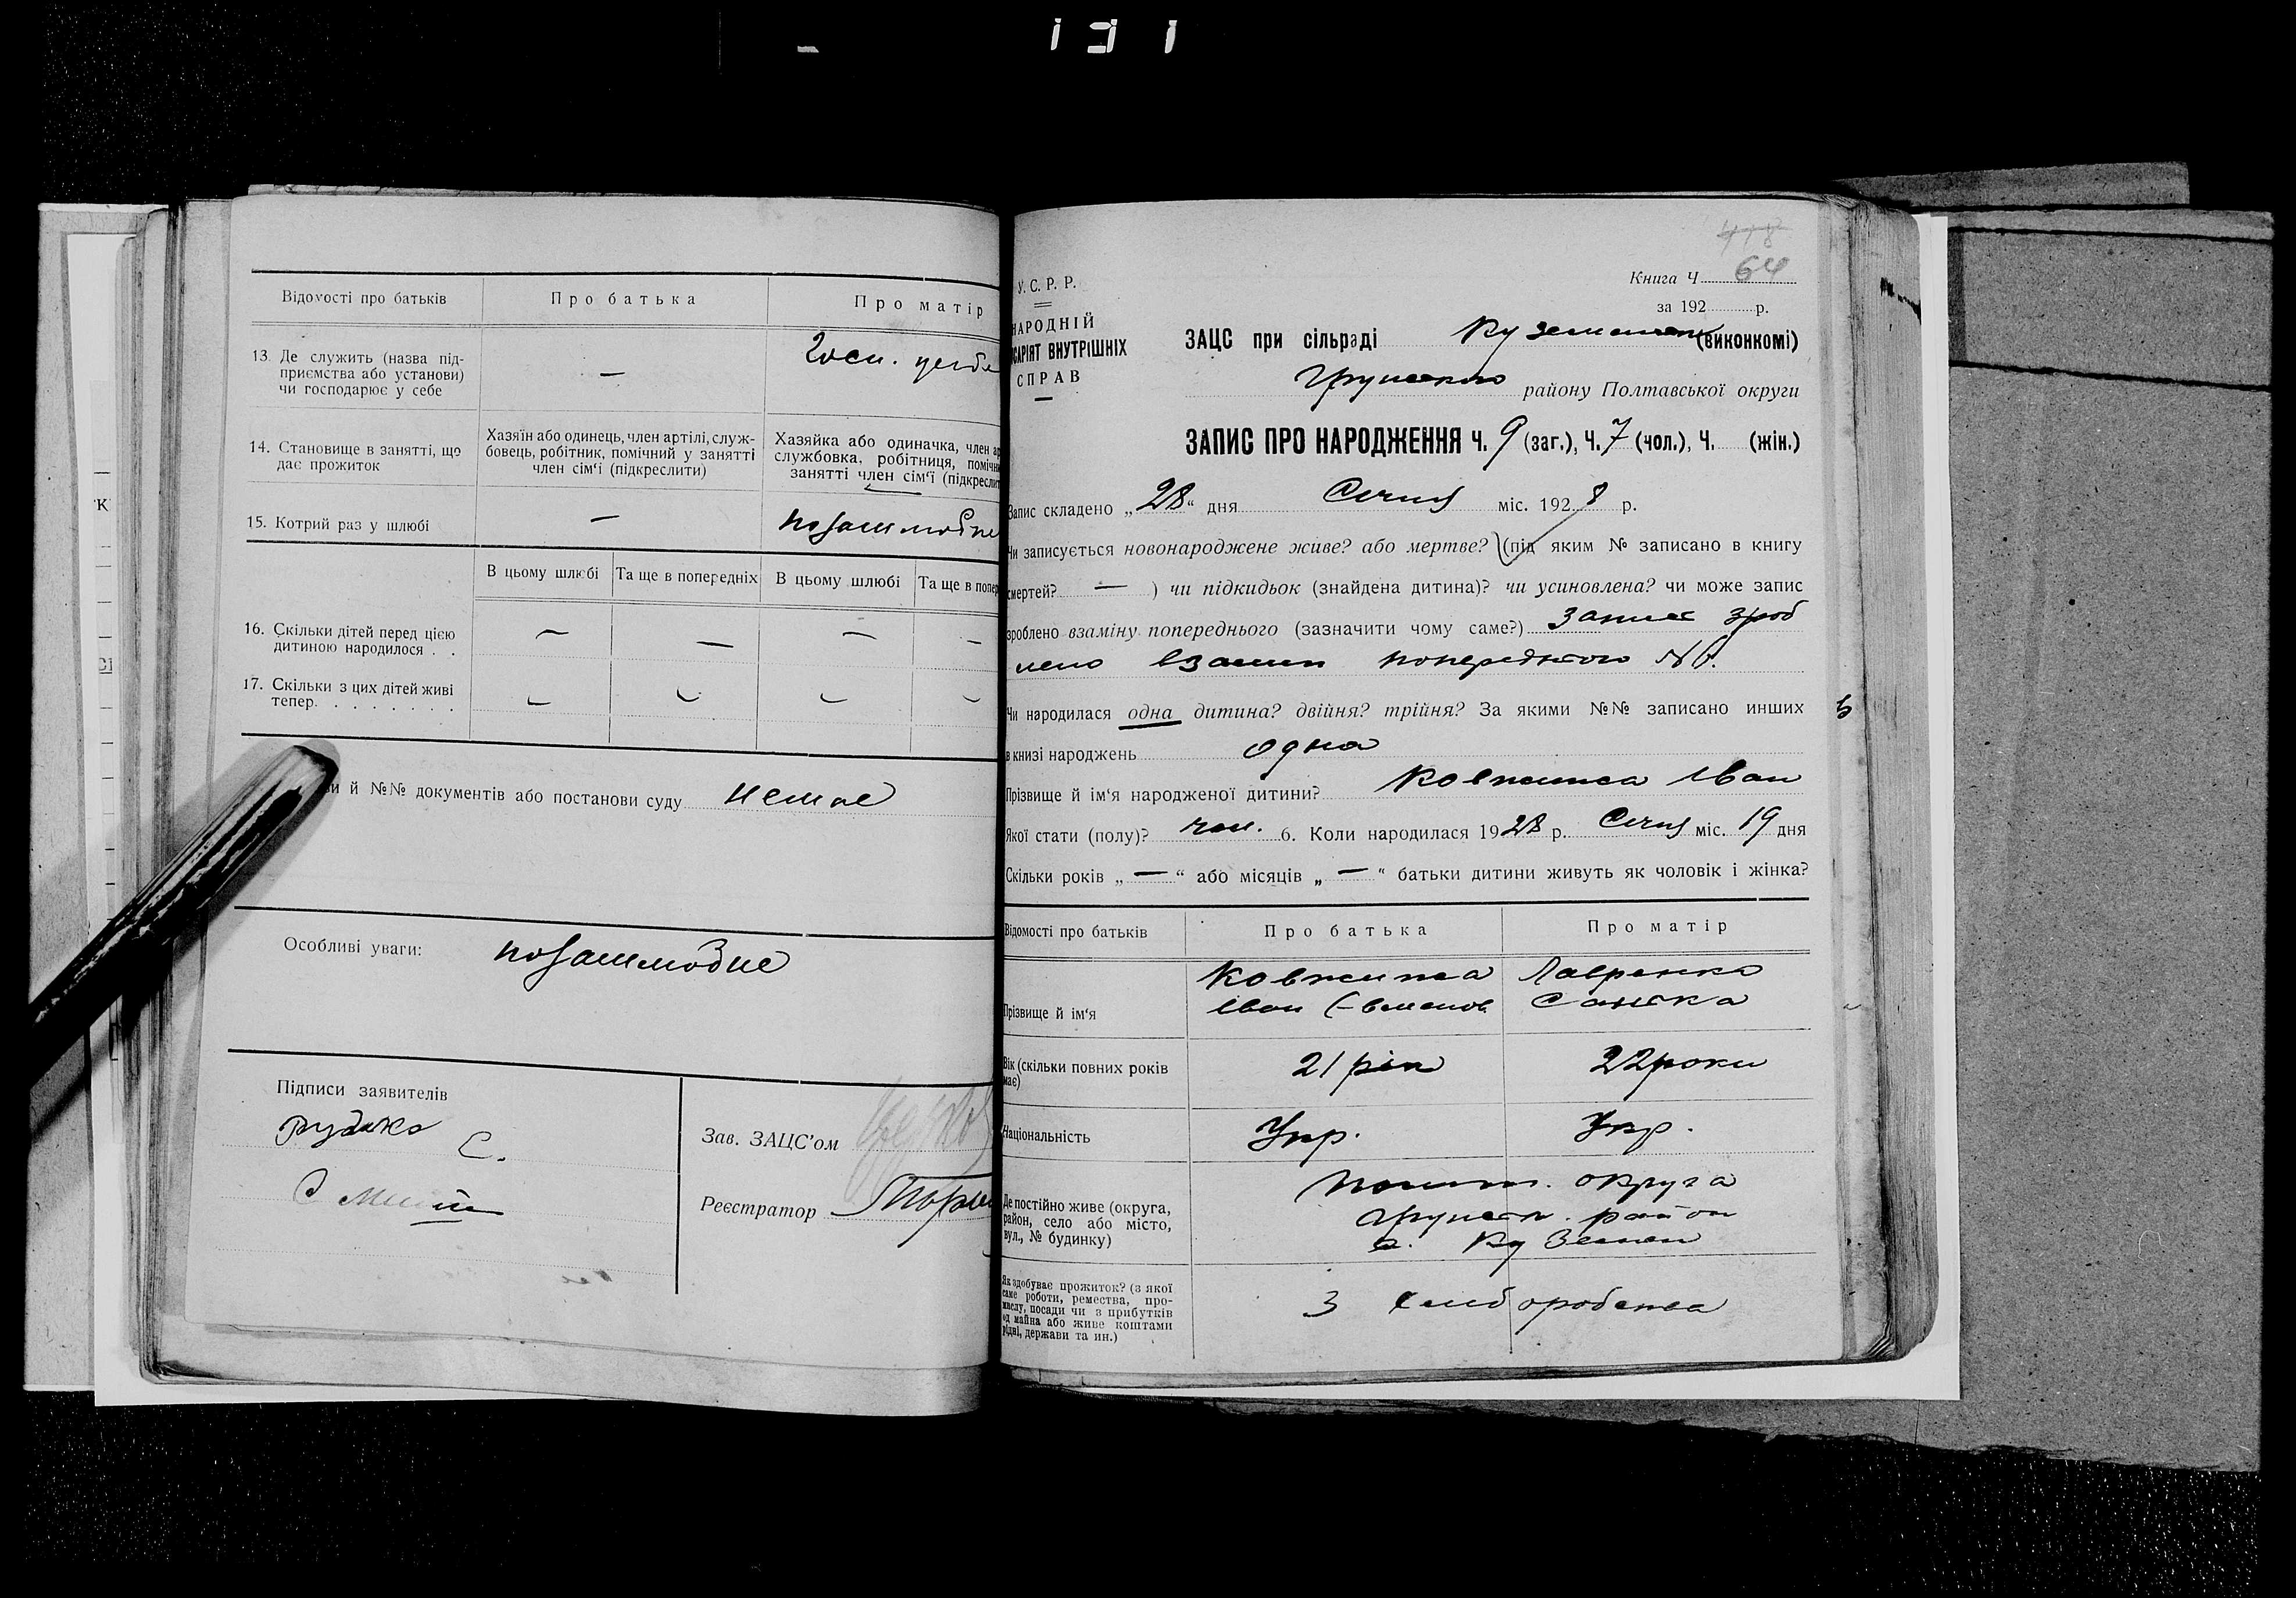 131
Відомості про батьків
Про батька
Про матір
13. Де служить (назва під-
приємства або установи)
чи господарює у себе
—
14. Становище в занятті, що
дає прожиток
Хазяїн або одинець, член артілі, служ-
бовець, робітник, помічний у занятті
член сім'ї (підкреслити)
Хазяйка або одиначка, член ар
службовка, робітниця, помічн
занятті член сім'ї (підкреслит
15. Котрий раз у шлюбі
—
позашлюбне
В цьому шлюбі
Та ще в попередніх
В цьому шлюбі
Та ще в попер
16. Скільки дітей перед цією
дитиною народилося . .
— — — —
17. Скільки з цих дітей живі
тепер. . . . . . . .
— — — —
й №№ документів або постанови суду немає
Особливі уваги: позашлюбне
Підписи заявителів
С.
Зав. ЗАЦС'ом
Реєстратор
418
Книга Ч 64
за 192 р.
У.С.Р.Р.
НАРОДНІЙ
САРІЯТ ВНУТРІШНІХ
СПРАВ
ЗАЦС при сільраді (виконкомі)
Грунського району Полтавської округи
ЗАПИС ПРО НАРОДЖЕННЯ Ч. 9 (заг.), Ч. 7 (чол.), Ч. (жін.)
Запис складено „28“ дня Січня міс. 1928 р.
Чи записується новонароджене живе? або мертве? (під яким № записано в книгу
смертей? — ) чи підкидьок (знайдена дитина)? чи усиновлена? чи може запис
зроблено взаміну попереднього (зазначити чому саме?) Запис зроб
лено взамін попереднього №
Чи народилася одна дитина? двійня? трійня? За якими №№ записано инших
в книзі народжень одна
Прізвище й ім'я народженої дитини? Ковжика Іван
Якої стати (полу)? чол. 6. Коли народилася 1928 р. Січня міс. 19 дня
Скільки років „—“ або місяців „—“ батьки дитини живуть як чоловік і жінка?
Відомості про батьків
Про батька
Про матір
Прізвище й ім'я
Ковжика
Іван
Лавренко
Санька
Вік (скільки повних років
має)
21 рік
22 роки
Національність
Укр.
Укр.
Де постійно живе (округа,
район, село або місто,
вул., № будинку)
Полт. округа
Грунськ. район
с. Куземен
Як здобуває прожиток? (з якої
саме роботи, ремества, про-
мислу, посади чи з прибутків
од майна або живе коштами
рідні, держави та ин.)
З хліборобства